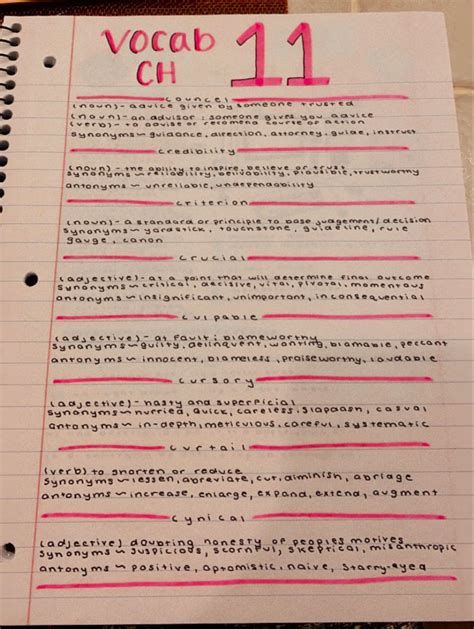 Vocab 11
CH
counsel
(noun)- advice given by someone trusted
(noun)- an advisor : someone gives you advice
(verb)- to advise or recomend course of action
synonyms ~ guidance, direction, attorney, guide, instruct
credibility
(noun) - the ability to inspire, believe or trust
synonyms ~ reliability, believability, plausible, trustworthy
antonyms ~ unreliable, undependability
criterion
(noun)- a standard or principle to base judgement/decision
synonyms ~ yardstick, touchstone, guideline, rule
gauge, canon
crucial
(adjective)- at a point that will determine final outcome
synonyms ~ critical, decisive, vital, pivotal, momentous
antonyms ~ insignificant, unimportant, inconsequential
culpable
(adjective) - at fault; blameworthy
synonyms ~ guilty, delinquent, wanting, blamable, peccant
antonyms ~ innocent, blameless, praiseworthy, laudable
cursory
(adjective)- hasty and superficial
synonyms ~ hurried, quick, careless, slapdash, casual
antonyms ~ in-depth, meticulous, careful, systematic
curtail
(verb) to shorten or reduce
synonyms ~ lessen, abreviate, cut, diminish, abridge
antonyms ~ increase, enlarge, expand, extend, augment
cynical
(adjective) doubting honesty of peoples motives
synonyms ~ suspicious, scornful, skeptical, misanthropic
antonyms ~ positive, optomistic, naive, starry-eyed